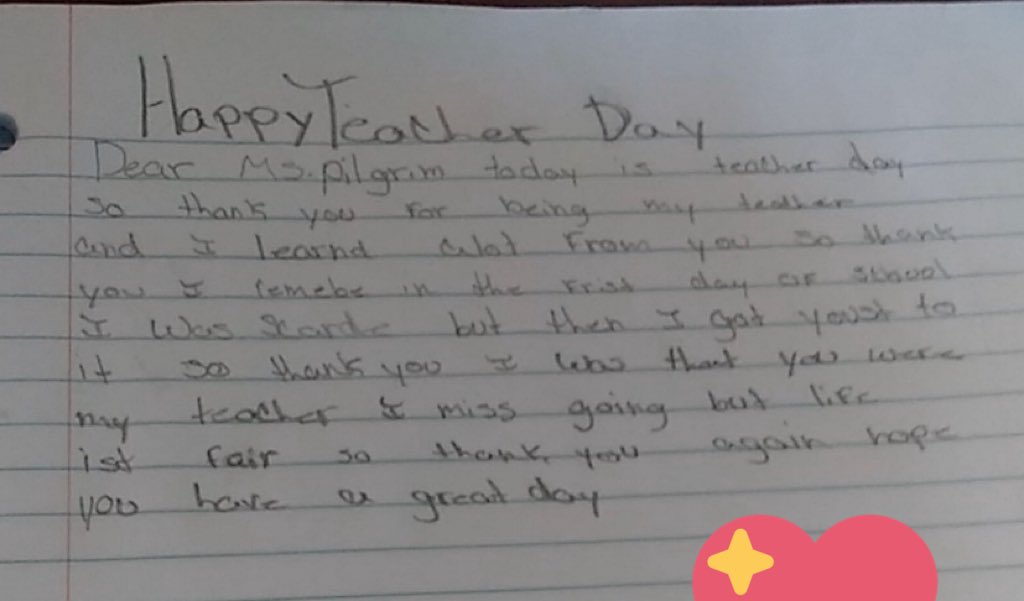 Happy Teacher Day
Dear Ms. Pilgrim today is teacher day
so thank you for being my teather
and I learnd alot From you so thank
you I remebe in the Frist day of school
I was Scarde but then I got youst to
it so thank you I was that you were
my teacher I miss going but life
ist fair so thank you again hope
you have a great day